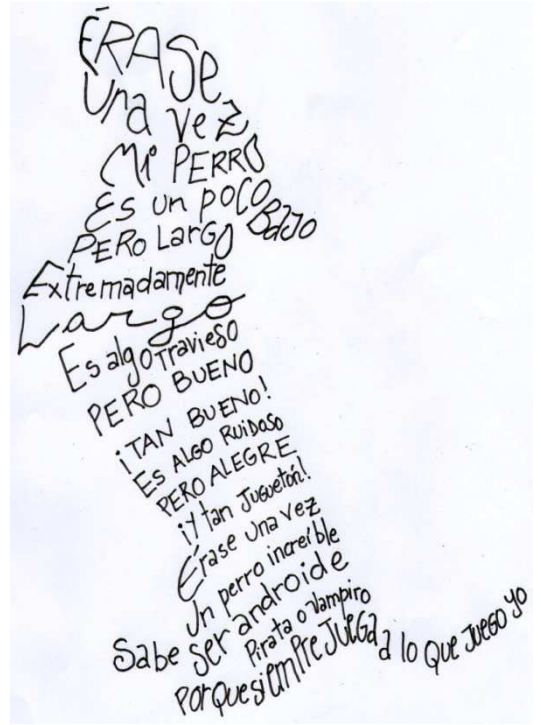 ÉRASE
Una vez
Mi PERRO
Es un poco BAJO
PERO LARGO
Extremadamente
Largo
Es algo travieso
PERO BUENO
¡TAN BUENO!
Es ALGO RUIDOSO
PERO ALEGRE
¡Y tan Juguetón!
Érase una vez
Un perro increíble
Sabe ser androide
Pirata o vampiro
Porque siempre juega a lo que juego yo